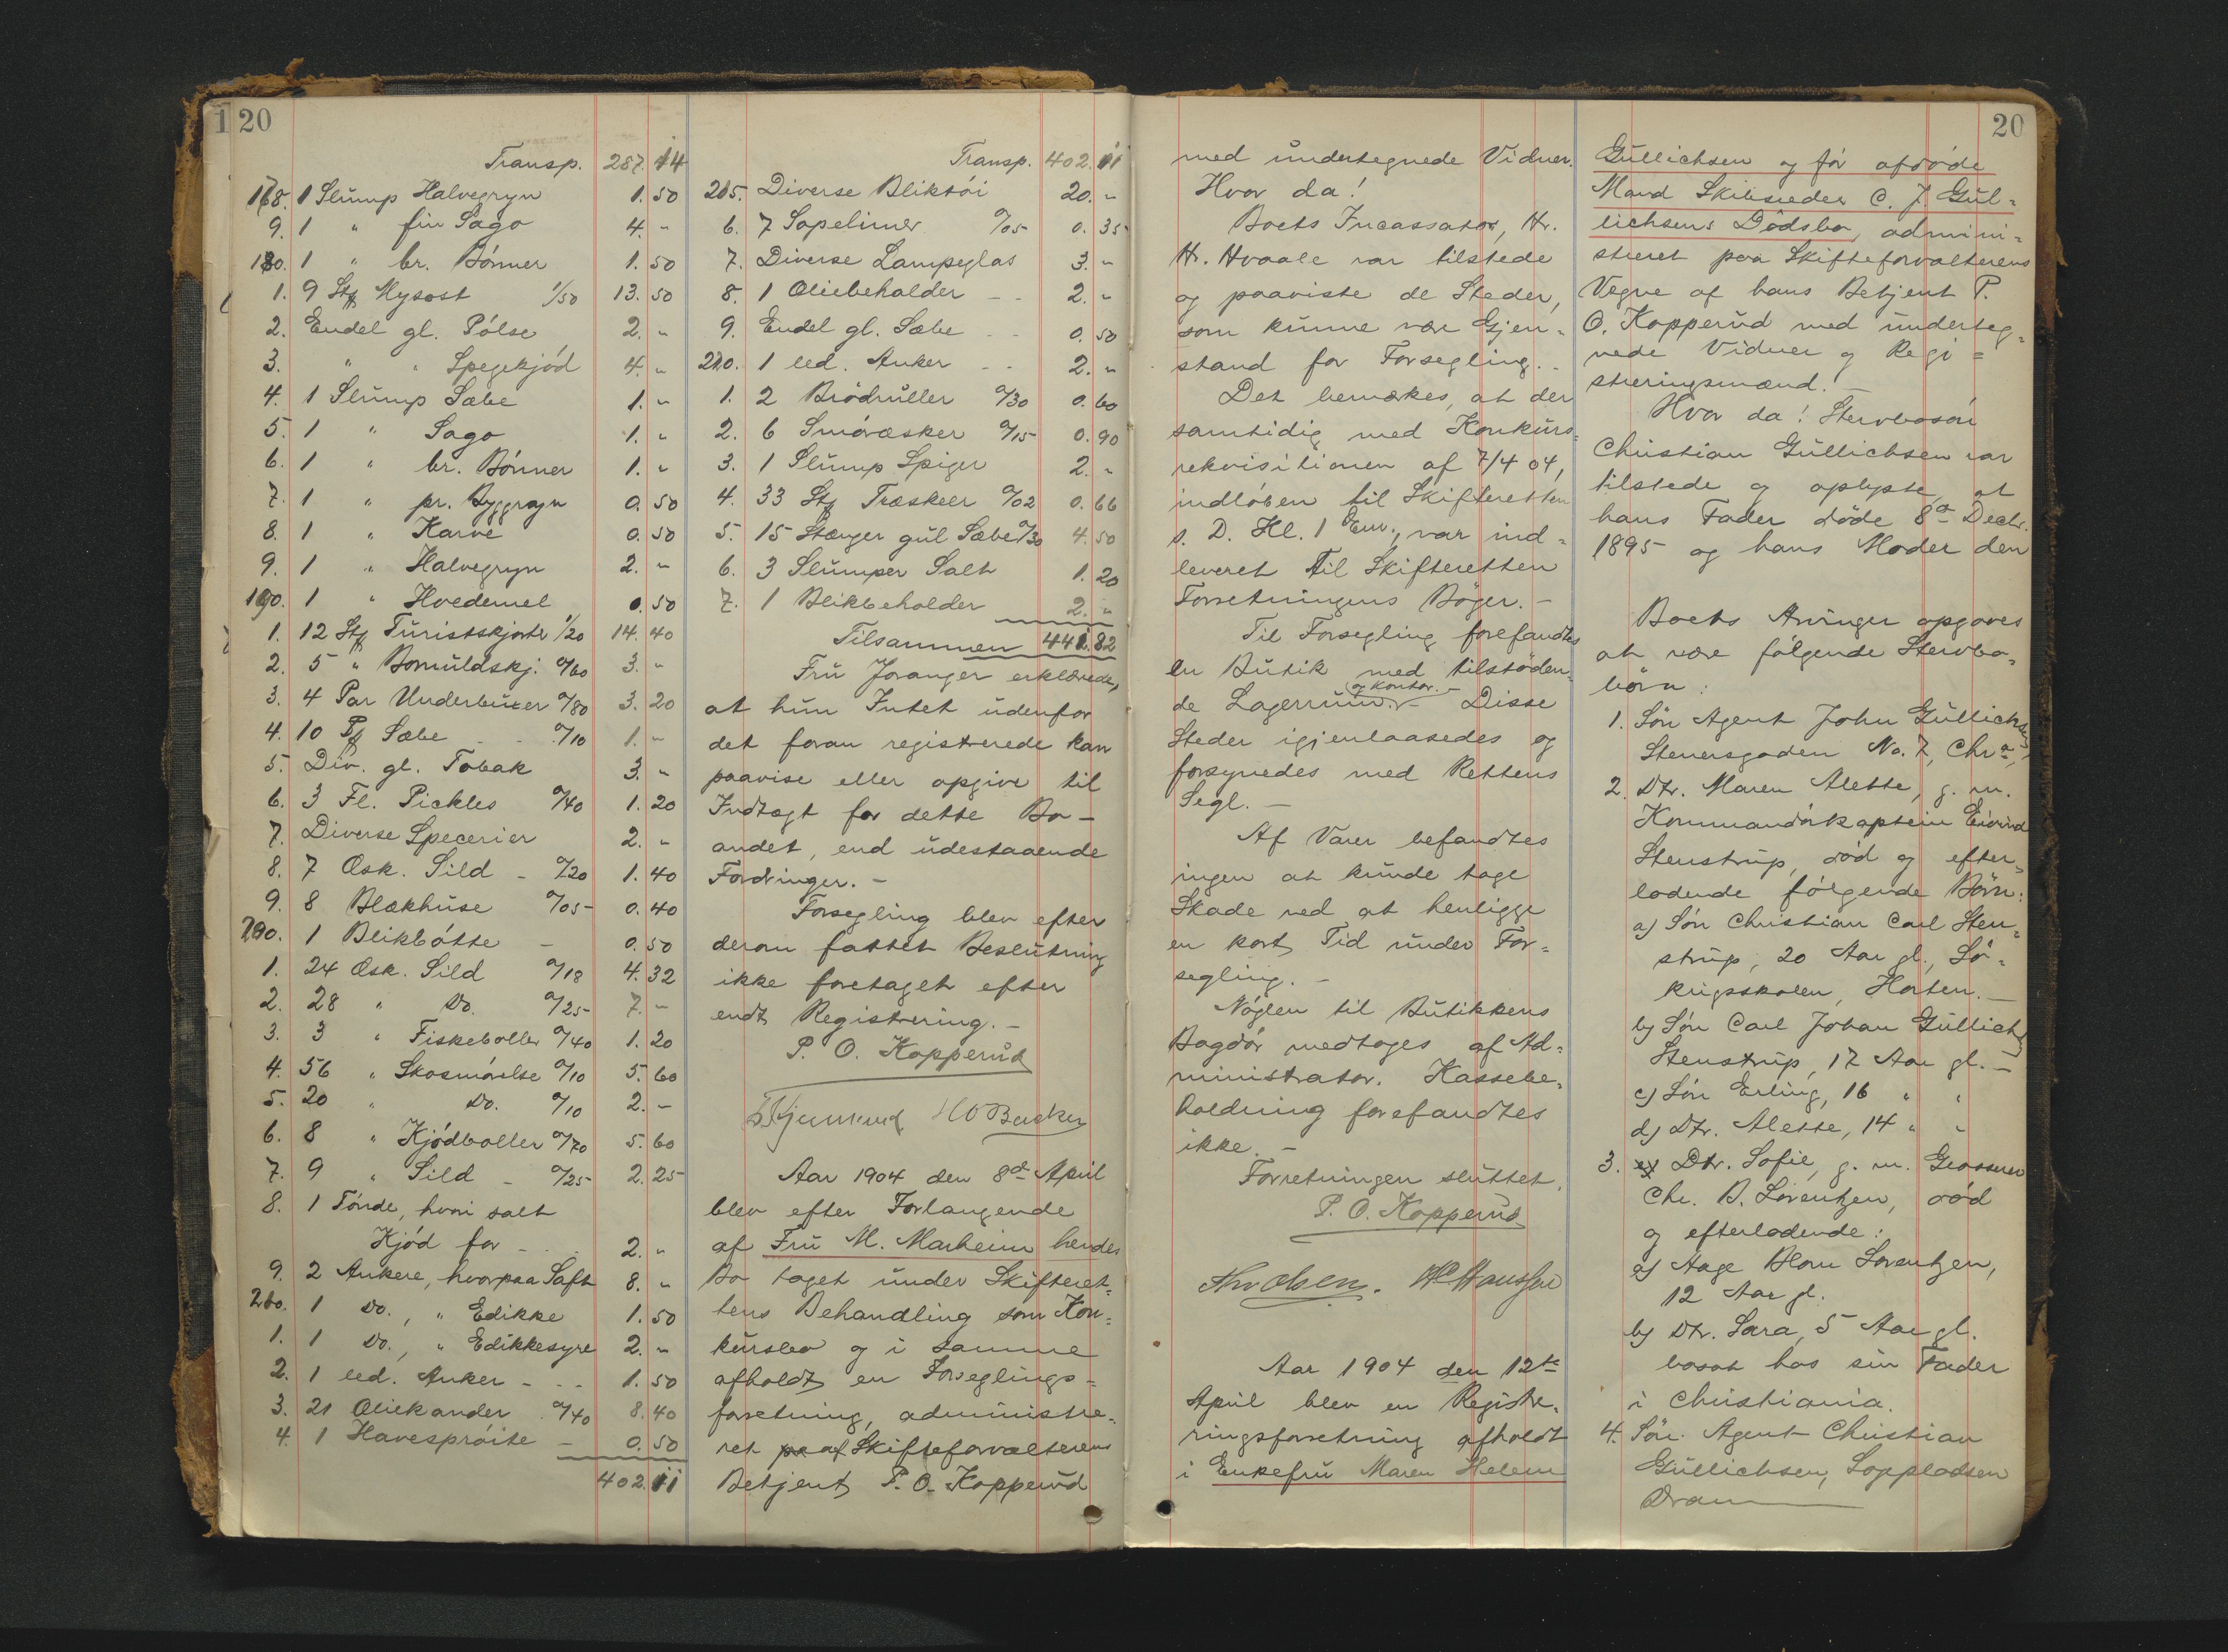 120
Transp. 287.14
178. 1 Slump Halvegryn 1.50
9. 1 " fin Sago 4. "
180. 1 " br. Bønner 1.50
1. 9 Stk Mysost 1/50 13.50
2. Endel gl. Pølse 2. "
3. " " Spegekjød 4. "
4. 1 Slump Sæbe 1. "
5. 1 " Sago 1. "
6. 1 " br. Bønner 1. "
7. 1 " pr. Byggryn 0.50
8. 1 " Karve 0.50
9. 1 " Halvegryn 2. "
190. 1 " Hvedemel 0.50
1. 12 Stk Turistskjorte 1/20 14.40
2. 5 " Bomuldskj. 0/60 3. "
3. 4 Par Underbuxer 0/80 3.20
4. 10 Pk Sæbe - - 0/10 1. "
5. Div. gl. Tobak 3. "
6. 3 Fl. Pickles 0/40 1.20
7. Diverse Specerier 2. "
8. 7 Æsk. Sild - 0/20 1.40
9. 8 Blækhuse 0/05 0.40
200. 1 Blikbøtte - 0.50
1. 24 Æsk. Sild 0/18 4.32
2. 28 " Do. 0/25 7. -
3. 3 " Fiskeboller 0/40 1.20
4. 56 " Skosmørelse 0/10 5.60
5. 20 " Do. 0/10 2. -
6. 8 " Kjødboller 0/70 5.60
7. 9 " Sild - 0/25 2.25
8. 1 Tønde, hvori salt
Kjød for - - 2. "
9. 2 Ankere, hvorpaa Saft 8. "
210. 1 Do., " Edikke 1.50
1. 1 Do., " Edikkesyre 2. "
2. 1 led. Anker - - - 1.50
3. 21 Oliekander 0/40 8.40
4. 1 Havesprøite - 0.50
402.11
Transp. 402.11
215. Diverse Bliktøi 20. "
6. 7 Sopelimer 0/05 0.35
7. Diverse Lampeglas 3. "
8. 1 Oliebeholder - - 2. "
9. Endel gl. Sæbe - - 0.50
220. 1 led. Anker - - 2. "
1. 2 Brødruller 0/30 0.60
2. 6 Smøræsker 0/15 0.90
3. 1 Slump Spiger 2. "
4. 33 Stk Træskeer 0/02 0.66
5. 15 Stænger gul Sæbe 0/30 4.50
6. 3 Slumper Salt 1.20
7. 1 Blikbeholder 2. "
Tilsammen 441.82
Fru Joranger erklærede,
at hun Intet udenfor
det foran registrerede kan
paavise eller opgive til
Indtægt for dette Bo -
andet, end udestaaende
Fordringer. -
Forsegling blev efter
derom fattet Beslutning
ikke foretaget efter
endt Registrering. -
P. O. Kopperud
Aar 1904 den 8de April
blev efter Forlangende
af Fru M. Marheim hendes
Bo taget under Skifteret=
tens Behandling som Kon=
kursbo og i samme
afholdt en Forseglings=
forretning, administre=
ret pa af Skifteforvalterens
Betjent P. O. Kopperud
20
med undertegnede Vidner.
Hvor da!
Boets Incassator, Hr.
H. Hvaale var tilstede
og paaviste de Steder,
som kunne være Gjen=
stand for Forsegling. -
Det bemærkes, at der
samtidig med Konkurs=
rekvisitionen af 7/4 04,
indløben til Skifteretten
s. D. Kl. 1 Em., var ind=
leveret til Skifteretten
Forretningens Bøger. -
Til Forsegling forefandtes
en Butik med tilstøden=
og Kontor. -
de Lagerrum. - Disse
Steder igjenlaasedes og
forsynedes med Rettens
Segl. -
Af Varer befandtes
ingen at kunde tage
Skade ved at henligge
en kort Tid under For=
segling. -
Nøglen til Butikkens
Bagdør medtoges af Ad=
ministrator. Kassebe=
holdning forefandtes
ikke. -
Forretningen sluttet.
P. O. Kopperud
Aar 1904 den 12te
April blev en Registre=
ringsforretning afholdt
i Enkefru Maren Helene
Gullichsen og før afdøde
Mand Skibsreder C. J. Gul=
lichsens Dødsbo, admini=
streret paa Skifteforvalterens
Vegne af hans Betjent P.
O. Kopperud med underteg=
nede Vidner og Regi=
streringsmænd. -
Hvor da! Stervbosøn
Christian Gullichsen var
tilstede og oplyste, at
hans Fader døde 8de Decbr.
1895 og hans Moder den
Boets Arvinger opgaves
at være følgende Stervbo=
børn:
1. Søn Agent John Gullichsen
Stenersgaden No. 7, Chr.a,
2. Dtr. Maren Alette, g. m.
Kommandørkaptein Eivind
Stenstrup, død og efter=
ladende følgende Børn:
a) Søn Christian Carl Sten=
strup, 20 Aar gl., Sø=
krigsskolen, Horten. -
b) Søn Carl Johan Gullichsen
Stenstrup, 17 Aar gl. -
c) Søn Erling, 16 " "
d) Dtr. Alette, 14 " "
3. Dtr. Sofie, g. m. Grosserer
Chr. B. Lorentzen, død
og efterladende:
a) Aage Blom Lorentzen,
12 Aar gl.
b) Dtr. Sara, 5 Aar gl.
bosat hos sin Fader
i Christiania.
4. Søn. Agent Christian
Gullichsen, Loppladsen
Dram